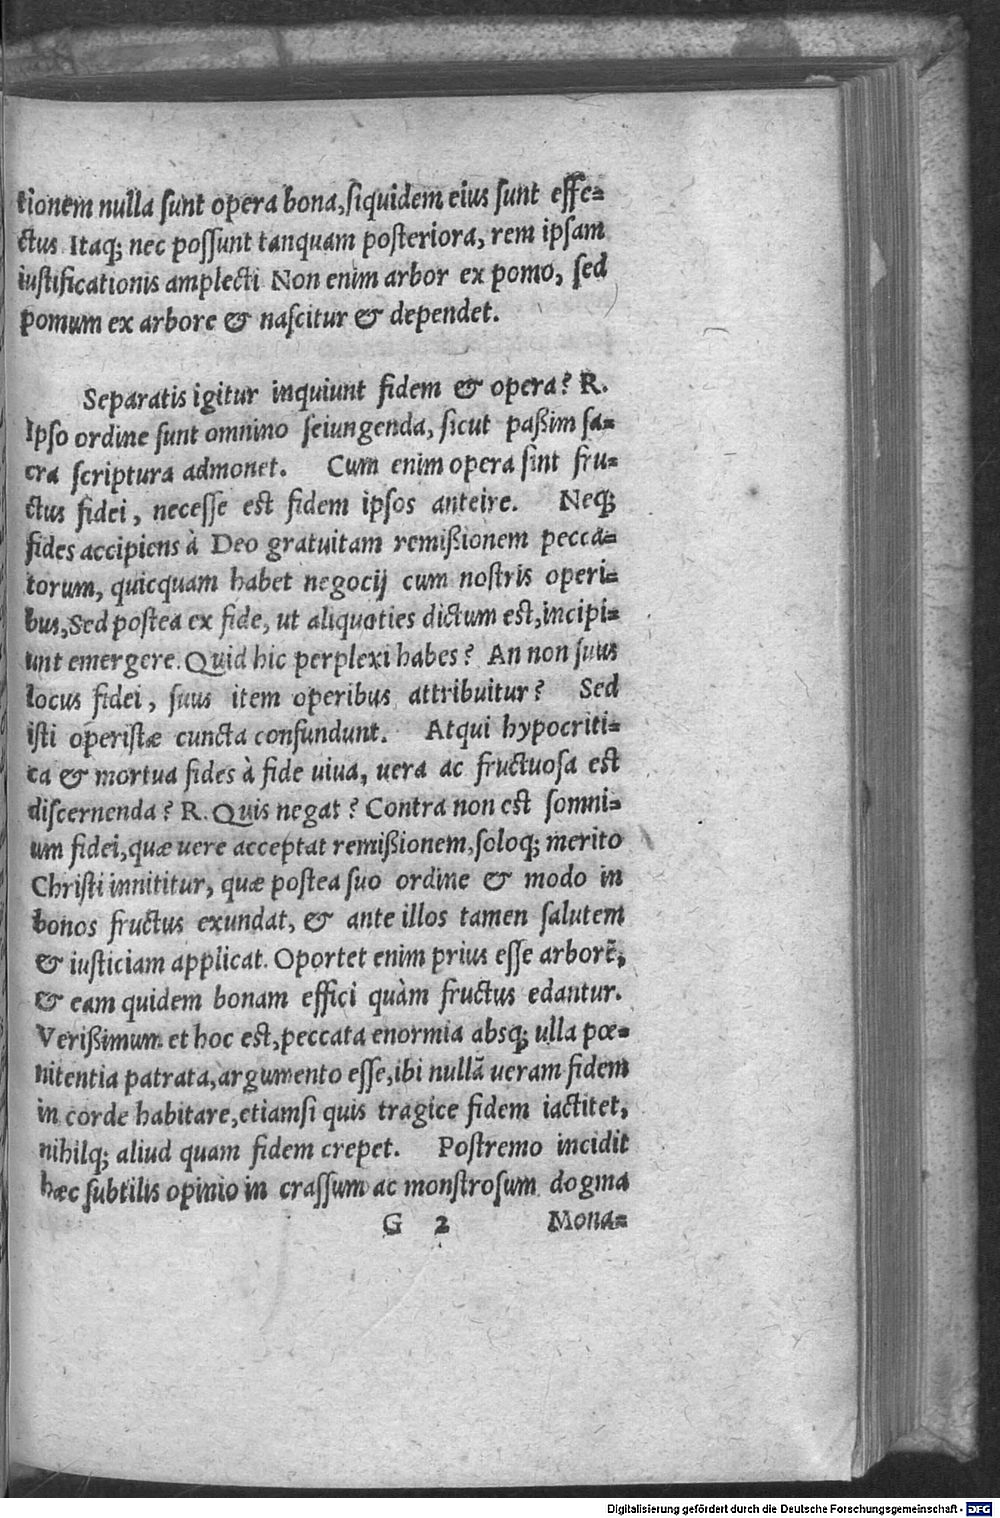 tionem nulla sunt opera bona, siquidem eius sunt effe-
ctus Itaq; nec possunt tanquam posteriora, rem ipsam
iustificationis amplecti Non enim arbor ex pomo, sed
pomum ex arbore & nascitur & dependet.
Separatis igitur inquiunt fidem & opera? R.
Ipso ordine sunt omnino seiungenda, sicut paßim sa-
cra scriptura admonet. Cum enim opera sint fru-
ctus fidei, necesse est fidem ipsos anteire. Neq;
fides accipiens à Deo gratuitam remißionem pecca-
torum, quicquam habet negocij cum nostris operi-
bus, Sed postea ex fide, ut aliquoties dictum est, incipi-
unt emergere. Quid hic perplexi habes? An non suus
locus fidei, suus item operibus attribuitur? Sed
isti operistæ cuncta confundunt. Atqui hypocriti-
ca & mortua fides à fide uiua, uera ac fructuosa est
discernenda? R. Quis negat? Contra non est somni-
um fidei, quæ uere acceptat remißionem, soloq; merito
Christi innititur, quæ postea suo ordine & modo in
bonos fructus exundat, & ante illos tamen salutem
& iusticiam applicat. Oportet enim prius esse arborē,
& eam quidem bonam effici quàm fructus edantur.
Verißimum et hoc est, peccata enormia absq; ulla pœ-
nitentia patrata, argumento esse, ibi nullā ueram fidem
in corde habitare, etiamsi quis tragice fidem iactitet,
nihilq; aliud quam fidem crepet. Postremo incidit
hæc subtilis opinio in crassum ac monstrosum dogma
G 2 Mona-
Digitalisierung gefördert durch die Deutsche Forschungsgemeinschaft - DFG